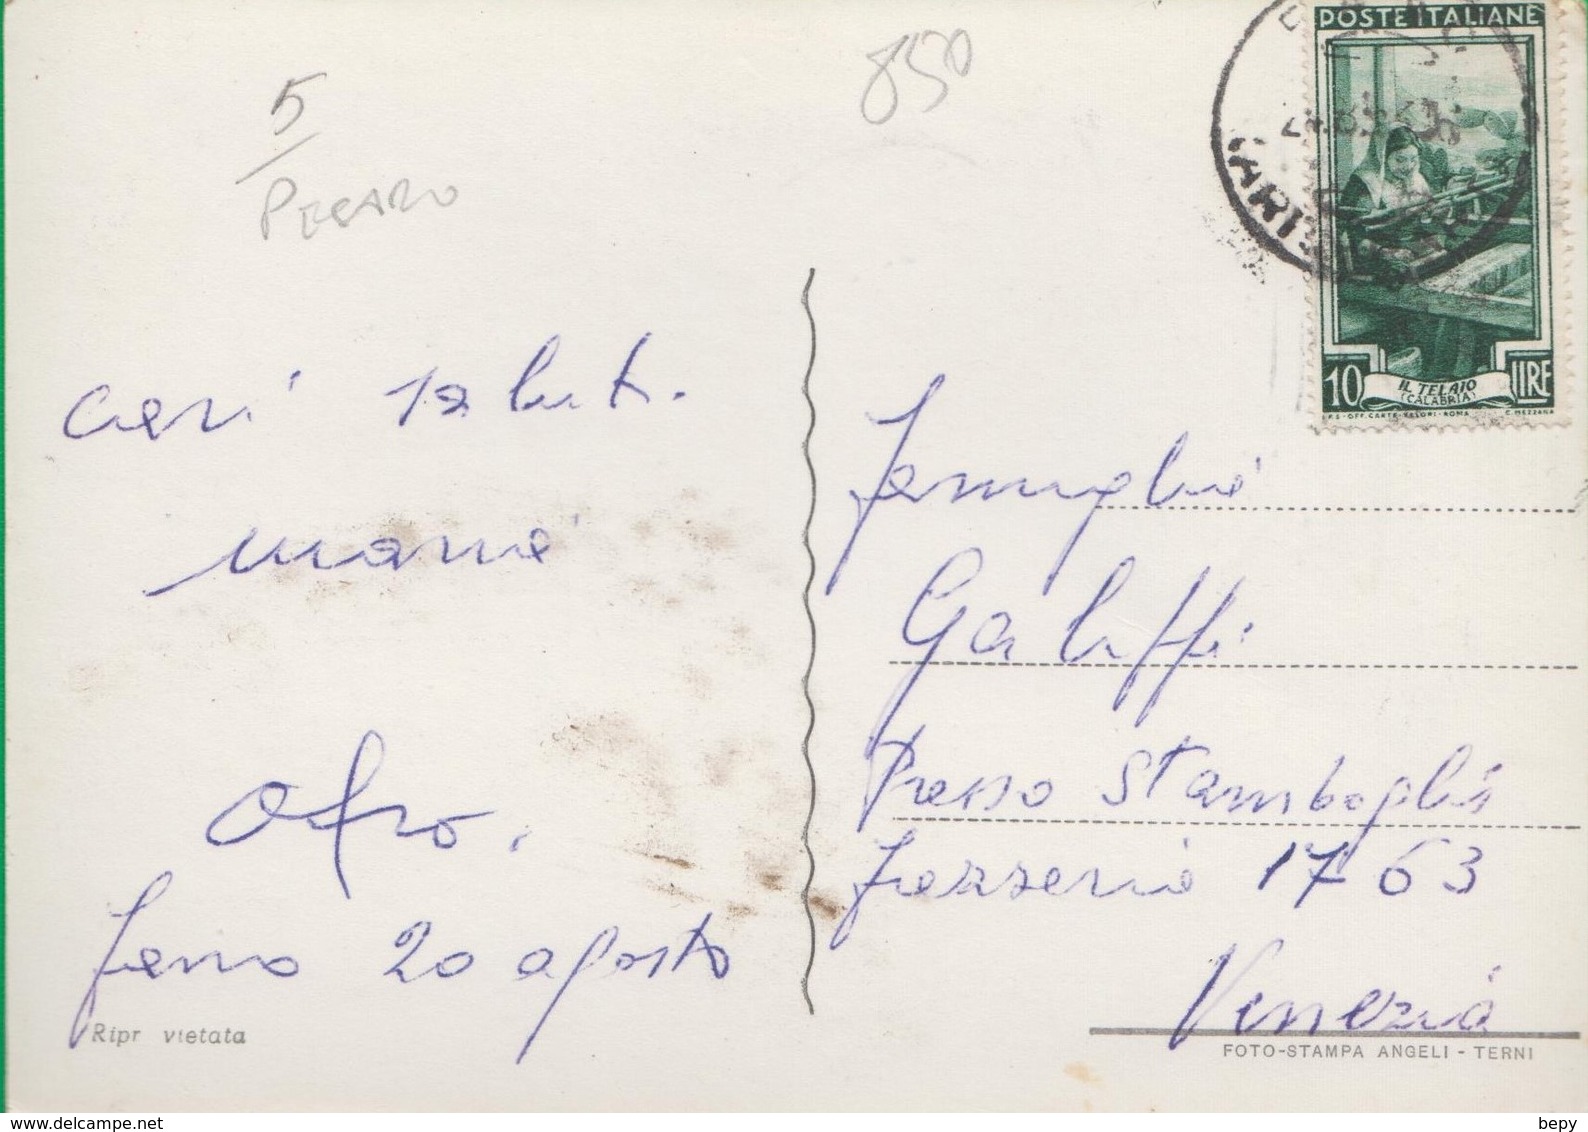 5
PESARO
850
POSTE ITALIANE
10 LIRE
IL TELAIO
(CALABRIA)
I.P.S-OFF.CARTE-VALORI-ROMA C.MEZZANA
cari saluti.
Afro.
Fermo 20 agosto
Ripr vietata
Famiglia
Galuffi
Presso Stamboglis
Frezzeria 1763
Venezia
FOTO-STAMPA ANGELI - TERNI
delcampe.net
bepy